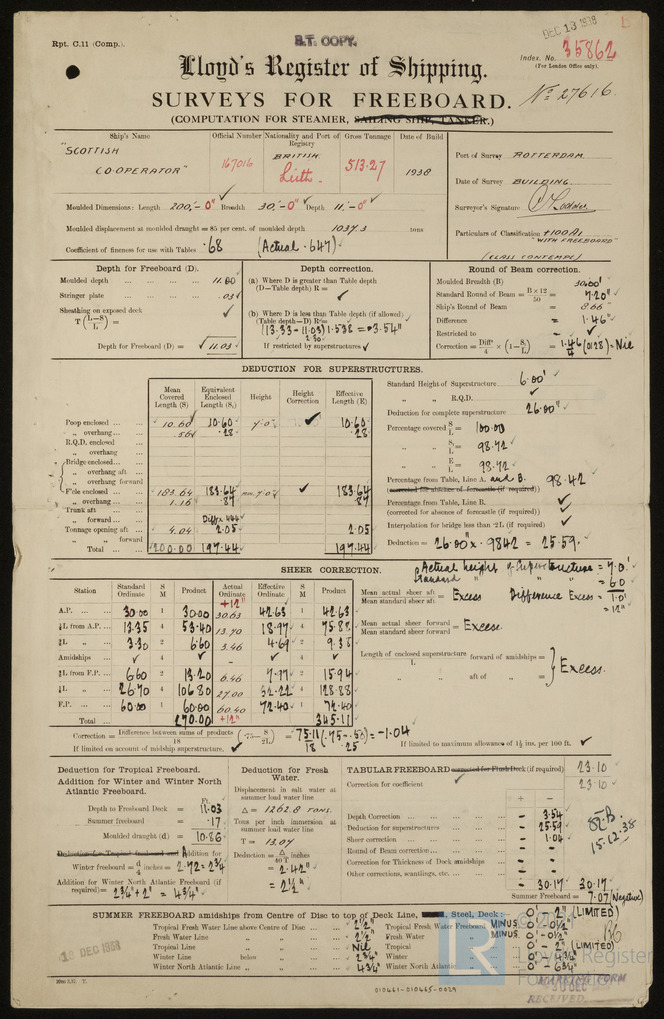 DEC 13 1938
Rpt. C.11 (Comp.).
B.T. COPY.
Index. No. 35862
(For London Office only).
Lloyd's Register of Shipping.
SURVEYS FOR FREEBOARD.
No 27616.
(COMPUTATION FOR STEAMER, SAILING SHIP, TANKER.)
Ship's Name
Official Number
Nationality and Port of Registry
Gross Tonnage
Date of Build
"SCOTTISH CO-OPERATOR"
167016
BRITISH Leith.
513.27
1938
Port of Survey ROTTERDAM
Date of Survey BUILDING
Surveyor's Signature
Particulars of Classification +100A1 "WITH FREEBOARD"
(CLASS CONTEMP.)
Moulded Dimensions: Length 200'-0" Breadth 30'-0" Depth 11'-0"
Moulded displacement at moulded draught = 85 per cent. of moulded depth 1037.3 tons
Coefficient of fineness for use with Tables .68 (Actual .647)
Depth for Freeboard (D).
Moulded depth 11.00
Stringer plate .03
Sheathing on exposed deck
T (L-S/L) =
Depth for Freeboard (D) = 11.03
Depth correction.
(a) Where D is greater than Table depth
(D—Table depth) R =
(b) Where D is less than Table depth (if allowed)
(Table depth—D) R =
(13.33 - 11.03) 1.538 = -3.54"
2.30
If restricted by superstructures
Round of Beam correction.
Moulded Breadth (B) 30.00'
Standard Round of Beam = B×12/50 = 7.20"
Ship's Round of Beam = 8.66
Difference 1.46"
Restricted to
Correction = Diff/4 × (1-S/L) = 1.46/4 (.0128) = Nil
DEDUCTION FOR SUPERSTRUCTURES.
Mean Covered Length (S)
Equivalent Enclosed Length (S₁)
Height
Height Correction
Effective Length (E)
Poop enclosed 10.60 10.60 7.0' 10.60
" overhang .56 .28 .28
R.Q.D. enclosed
" overhang
Bridge enclosed
" overhang aft
" overhang forward
F'cle enclosed 183.64 183.64 7.0' 183.64
" overhang 1.16 .87 .87
Trunk aft
" forward
Tonnage opening aft 4.04 2.05 2.05
" " forward
Total 200.00 197.44 197.44
Standard Height of Superstructure 6.00'
" " R.Q.D.
Deduction for complete superstructure 26.00"
Percentage covered S/L = 100.00
" " S₁/L = 98.72
" " E/L = 98.72
Percentage from Table, Line A. and B. 98.42
(corrected for absence of forecastle (if required))
Percentage from Table, Line B.
(corrected for absence of forecastle (if required))
Interpolation for bridge less than ·2L (if required)
Deduction = 26.00" x .9842 = 25.59.
SHEER CORRECTION.
Actual height of Superstructures = 7.0'
Standard " " " = 6.0
Difference Excess = 1.0' = 12"
Station
Standard Ordinate
S M
Product
Actual Ordinate
Effective Ordinate
S M
Product
+12"
A.P. 30.00 1 30.00 30.63 42.63 1 42.63
⅙L from A.P. 13.35 4 53.40 13.70 18.97 4 75.88
⅓L " 3.30 2 6.60 3.46 4.69 2 9.38
Amidships 4 4
⅓L from F.P. 6.60 2 13.20 6.46 7.97 2 15.94
⅙L " 26.70 4 106.80 27.00 32.22 4 128.88
F.P. 60.00 1 60.00 60.40 72.40 1 72.40
Total 270.00 +12" 345.11
Mean actual sheer aft / Mean standard sheer aft = Excess
Mean actual sheer forward / Mean standard sheer forward = Excess
Length of enclosed superstructure / L forward of amidships =
" " aft of " =
Excess.
Correction = Difference between sums of products / 18 (·75 - S/2L) = 75.11/18 (.75 - .50) = -1.04
.25
If limited on account of midship superstructure.
If limited to maximum allowance of 1½ ins. per 100 ft.
Deduction for Tropical Freeboard.
Addition for Winter and Winter North Atlantic Freeboard.
Ft.
Depth to Freeboard Deck = 11.03
Summer freeboard = .17
Moulded draught (d) = 10.86
Deduction for Tropical freeboard and Addition for Winter freeboard = d/4 inches = 2.72 = 2¾"
Addition for Winter North Atlantic Freeboard (if required) = 2¾" + 2" = 4¾"
Deduction for Fresh Water.
Displacement in salt water at summer load water line
Δ = 1262.8 TONS.
Tons per inch immersion at summer load water line
T = 13.07
Deduction = Δ/40T inches
= 2.42"
= 2½"
TABULAR FREEBOARD corrected for Flush Deck (if required) 23.10
Correction for coefficient 23.10
+ -
Depth Correction - 3.54
Deduction for superstructures - 25.59
Sheer correction - 1.04
Round of Beam correction - -
Correction for Thickness of Deck amidships - -
Other corrections, scantlings, etc. - -
- 30.17 30.17
Summer Freeboard = 7.07 (Negative)
15.12.38
SUMMER FREEBOARD amidships from Centre of Disc to top of Deck Line, Steel, Deck: 0' - 2" (LIMITED)
Tropical Fresh Water Line above Centre of Disc 2½"
Fresh Water Line " " 2½"
Tropical Line " " Nil
Winter Line below " 2¾"
Winter North Atlantic Line " " 4¾"
Tropical Fresh Water Freeboard MINUS 0' - 0½"
Fresh Water " MINUS 0' - 0½"
Tropical " 0' - 2" (LIMITED)
Winter " 0' - 4¾"
Winter North Atlantic " 0' - 6¾"
13 DEC 1938
010461-010465-0029
LR
Lloyd's Register
MARKING FORM
DEC
RECEIVED